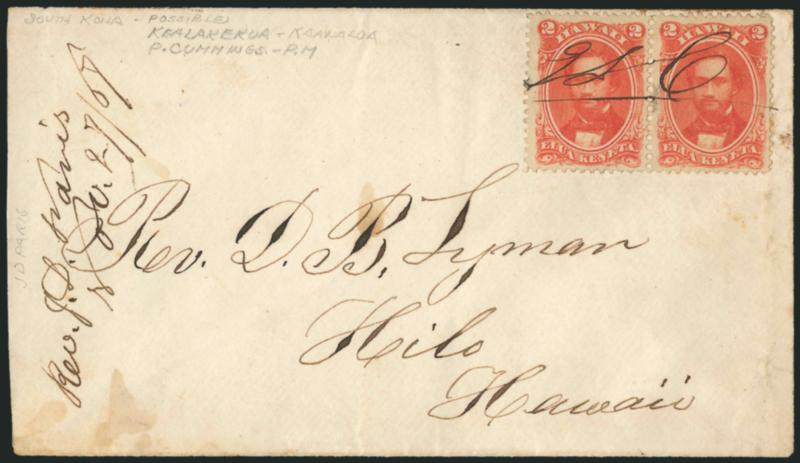 SOUTH KONA - POSSIBLE
KEALAKEKUA - KAAWALOA
P. CUMMINGS - P.M
2 HAWAII 2
ELUA KENETA
2 HAWAII 2
ELUA KENETA
Rev. J. D. Paris
27/67
J D PARIS
Rev. D. B. Lyman
Hilo
Hawaii